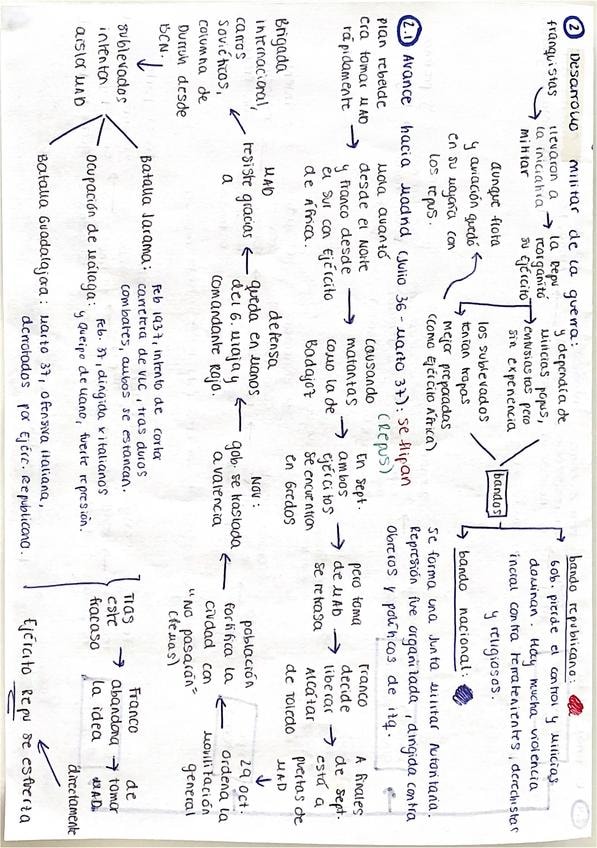 ② Desarrollo militar de la guerra:
franquistas
llevaron a
la iniciativa
militar
la Repu
reorganizó
su Ejército
y dependía de
milicias popus,
entusiastas pero
sin experiencia
aunque flota
y aviación quedó
en su mayoría con
los repus.
los sublevados
tenían tropas
mejor preparadas
(como Ejército África)
bandos
bando republicano:
Gob. pierde el control y milicias
dominan. Hay mucha violencia
inicial contra terratenientes, derechistas
y religiosos.
bando nacional:
Se forma una Junta Militar Autoritaria.
Represión fue organizada, dirigida contra
obreros y políticos de izq.
2.1 Avance hacia Madrid, (Julio 36 - Marzo 37): se flipan
(Repus)
plan rebelde
era tomar MAD
rápidamente
Mola avanzó
desde el Norte
y Franco desde
el sur con Ejército
de África.
causando
matanzas
como la de
Badajoz
En sept.
ambos
ejércitos
se encuentran
en Gredos
pero toma
de MAD
se retrasa
Franco
decide
liberar
Alcázar
de Toledo
A finales
de sept.
está a
puertas de
MAD
29 oct.
ordena la
movilización
general
población
fortifica la
ciudad con
"No pasarán"
(lemas)
Nov:
gob. se traslada
a Valencia
defensa
queda en manos
del G. Miaja y
comandante Rojo.
MAD
resiste gracias
a
Brigada
internacional,
carros
Soviéticos,
columna de
Durruti desde
BCN.
sublevados
intentan
aislar MAD
Batalla Jarama: Feb 1937, intento de cortar
carretera de VLC, tras duros
combates, ambos se estancan.
Ocupación de Málaga: Feb. 37, dirigida x italianos
y Queipo de Llano, fuerte represión.
Batalla Guadalajara: Marzo 37, ofensiva italiana,
derrotados por Ejérc. Republicano.
Tras
este
fracaso
Franco
abandona
la idea
de
tomar
MAD
directamente
Ejército Repu se esfuerza